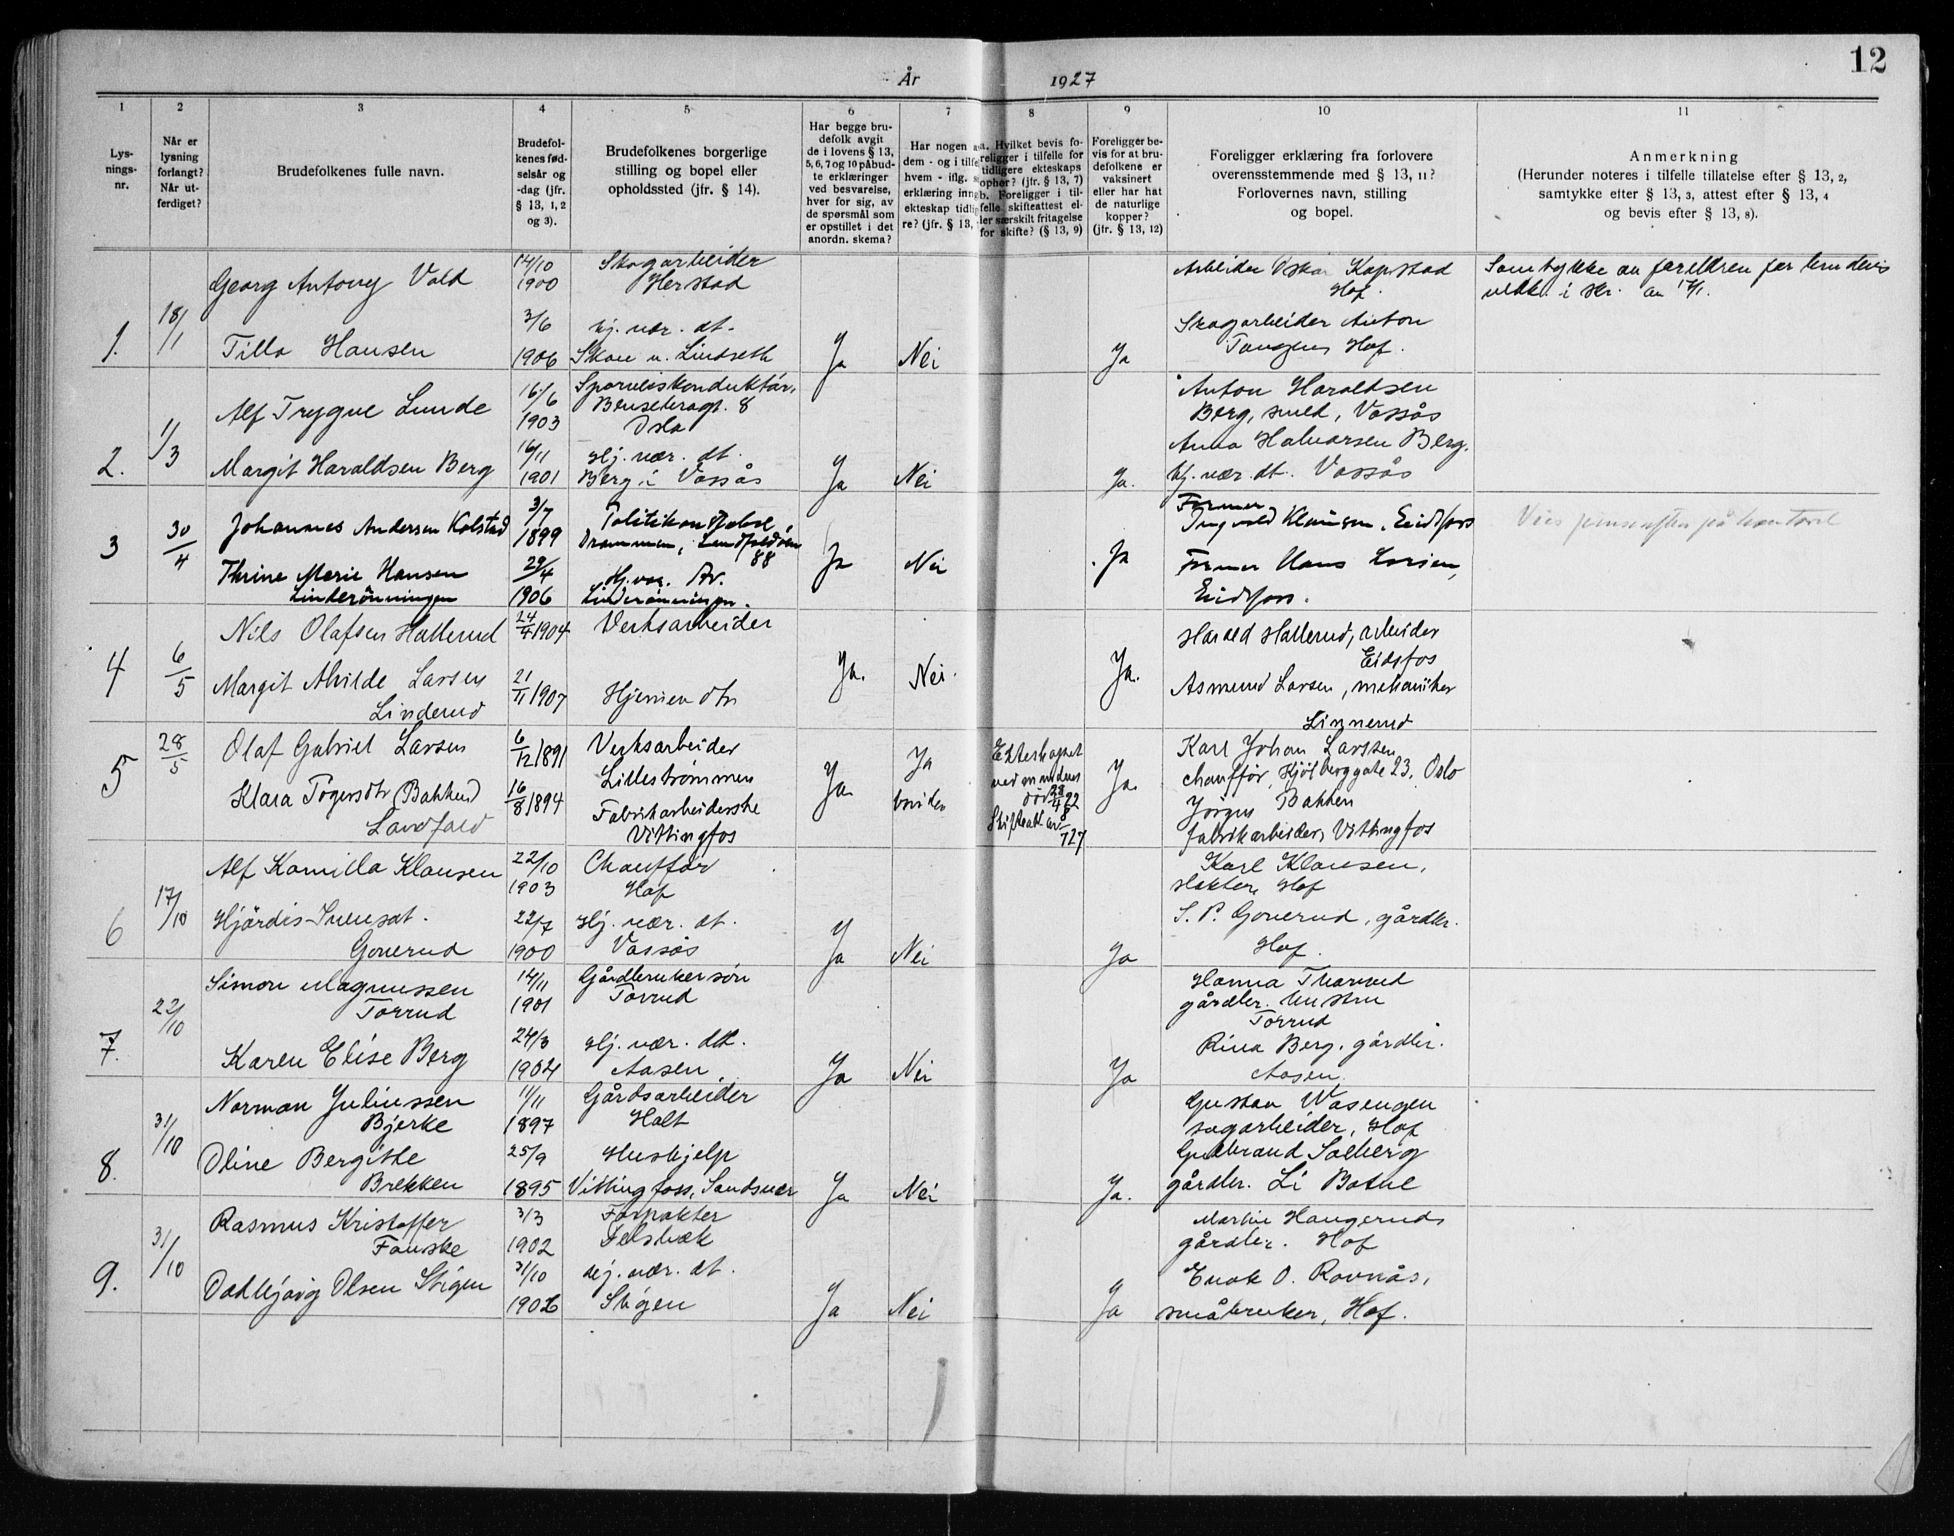 12
År 1927
1 2 3 4 5 6 7 8 9 10 11
Lys-
nings-
nr.
Når er
lysning
forlangt?
Når ut-
ferdiget?
Brudefolkenes fulle navn.
Brudefol-
kenes fød-
selsår og
-dag (jfr.
§ 13, 1, 2
og 3).
Brudefolkenes borgerlige
stilling og bopel eller
opholdssted (jfr. § 14).
Har begge bru-
defolk avgit
de i lovens § 13,
5, 6, 7 og 10 påbud-
te erklæringer
ved besvarelse,
hver for sig, av
de spørsmål som
er opstillet i det
anordn. skema?
Har nogen a
dem - og i tilfe
hvem - iflg. s
erklæring inng
ekteskap tidlig
re? (jfr. § 13,
a. Hvilket bevis fo-
religger i tilfelle for
tidligere ekteskaps
ophør? (jfr. § 13, 7)
b. Foreligger i til-
felle skifteattest el-
ler særskilt fritagelse
for skifte? (§ 13, 9)
Foreligger be-
vis for at bru-
defolkene er
vaksinert
eller har hat
de naturlige
kopper?
(jfr. § 13, 12)
Foreligger erklæring fra forlovere
overensstemmende med § 13, 11?
Forlovernes navn, stilling
og bopel.
Anmerkning
(Herunder noteres i tilfelle tillatelse efter § 13, 2,
samtykke efter § 13, 3, attest efter § 13, 4
og bevis efter § 13, 8).
1. 18/1
Georg Antony Vold 14/10 1900 Skogarbeider Herstad
Arbeider Oskar Kopstad Hof.
Samtykke av foreldrene for brudens
vedk. i skr. av
Tilla Hansen 3/6 1906 hj. vær. dt. Skau u. Lindseth Ja Nei Ja
Skogarbeider Anton
Tangen, Hof.
2. 1/3
Alf Trygve Lunde 16/6 1903 Sporveiskonduktør, 8 Oslo
Anton Haraldsen
Berg, smed, Vassås
Margit Haraldsen Berg 16/11 1901 Hj. vær. dt. Berg i Vassås Ja Nei Ja.
Anna Halvorsen Berg.
hj. vær. dt. Vassås
3 30/4
Johannes Andersen Kolstad 3/7 1899 Politikonstabel Drammen, 88
Former
Ingvald Klausen, Eidsfoss
på kontoret
Thrine Marie Hansen
Linderønningen 29/4 1906 Hj. vær. Linderønningen. Ja Nei Ja
Former Hans Larsen,
Eidsfoss.
4 6/5
Nils Olafsen Hallerud 24/4 1904 Verksarbeider
Harald Hallerud, arbeider
Eidsfos
Margit Alvilde Larsen
Linderud 21/11 1907 Hjemmev. dtr Ja. Nei. Ja.
Asmund Larsen, mekaniker
Linnerud
5 28/5
Olaf Gabriel Larsen 6/12 1891 Verksarbeider
Lillestrømmen
Ja Ja
Ekteskapet
ved mandens
død 28/4 22
Skifteatt av 8/7 27
Ja.
Karl Johan Larsen
chauffør, Kjølberggate 23, Oslo
Klara Torgersdtr Bakken
Landfald 16/8 1894 Fabrikarbeiderske
Vittingfos bruden
Jørgen Bakken
fabrikarbeider, Vittingfos
6 17/10
Alf Kamillo Klausen 22/10 1903 Chauffør Hof
Karl Klausen,
slakter, Hof
Hjørdis Svensdt.
Gonerud 22/7 1900 Hj. vær. dt. Vassås Ja Nei Ja
S. P. Gonerud, gårdbr.
Hof.
7. 22/10
Simon Magnussen
Torrud 14/11 1901 Gårdbrukersøn
Torrud
Hanna Thorrud
gårdbr. hustru
Torrud
Karen Elise Berg 24/3 1904 Hj. vær. dtt. Aasen Ja Nei Ja
Rina Berg, gårdbr.
Aasen.
8. 31/10
Norman Juliussen
Bjerke 11/11 1897 Gårdsarbeider Holt
Gustav Wasengen
sagarbeider, Hof
Oline Bergitte
Brekken 25/9 1895 Hushjelp
Vittingfoss, Sandsvær Ja Nei Ja.
Gudbrand Solberg
gårdbr. Li Botne
9. 31/10
Rasmus Kristoffer
Fauske 3/3 1902 Forpakter
Martin Haugerud,
gårdbr. Hof
Olsen Stigen 31/10 1906 Hj. vær. dt. Stigen Ja Nei Ja
Enok O. Ravnås,
småbruker, Hof.